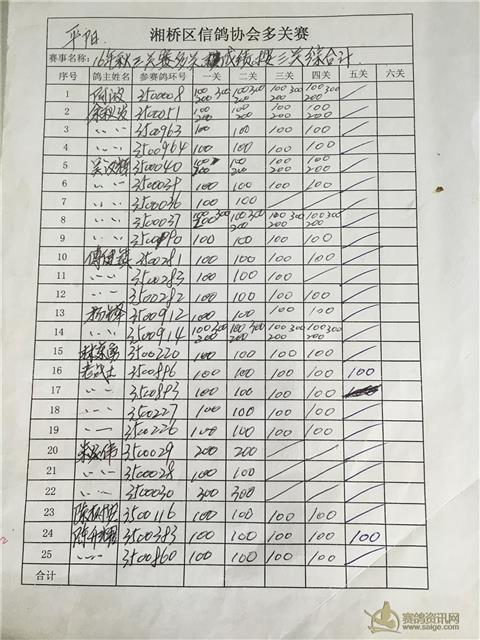 平阳
湘桥区信鸽协会多关赛
赛事名称: 16年秋三关赛
序号 鸽主姓名 参赛鸽环号 一关 二关 三关 四关 五关 六关
1 阿波 3500008 100 300 200 100 300 200 100 300 200 100 300 200
2 3500051 100 200 100 200 100 200 100 200
3 〃 〃 3500963 100 100 100 100
4 〃 〃 3500964 100 100 100 100
5 3500040 100 200 100 200 100 200 100 200
6 〃 〃 3500039 100 100 100 100
7 〃 〃 3500036 100 100
8 〃 〃 3500037 100 300 200 100 300 200 100 300 200 100 300 200
9 〃 〃 100 100 100 100
10 3500281 100 100 100 100
11 〃 〃 3500283 100 100 100
12 〃 〃 3500282 100 100 100 100
13 3500912 100 100 100 100
14 〃 〃 3500914 100 300 200 100 300 200 100 300 200 100 300 200
15 3500220 100 100 100 100
16 老战士 3500896 100 100 100 100 100
17 〃 〃 3500893 100 100 100 100
18 〃 〃 3500227 100 100 100 100
19 〃 〃 3500226 100 100 100 100
20 3500029 200 200
21 〃 〃 3500028 100 100
22 〃 〃 3500030 300 300
23 3500116 100 100 100 100
24 3500383 100 100 100 100 100
25 〃 〃 3500860 100 100 100 100
合计
赛鸽资讯网
www.saige.com